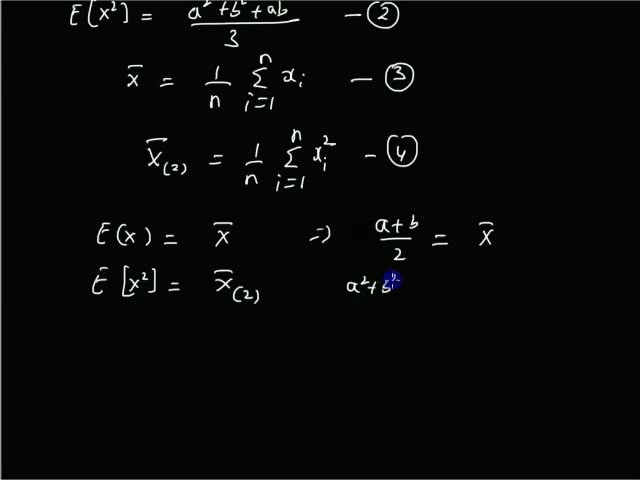 E[x²] = a²+b²+ab / 3 — ②
x̄ = 1/n Σ_{i=1}^{n} x_i — ③
x̄_(2) = 1/n Σ_{i=1}^{n} x_i² — ④
E(x) = x̄ ⇒ a+b / 2 = x̄
E[x²] = x̄_(2) a²+b²